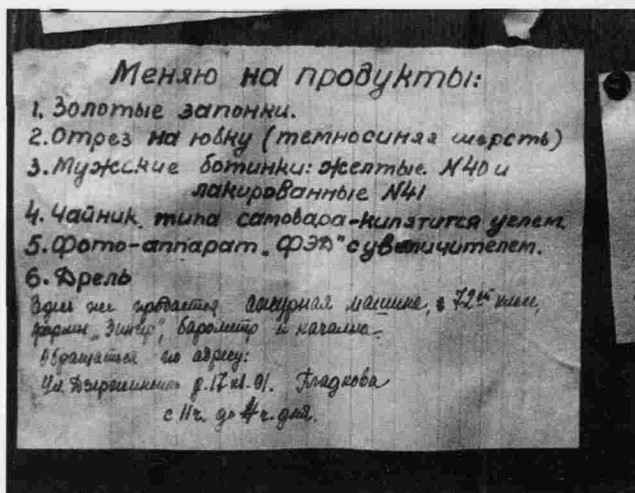 Меняю на продукты:
1. Золотые запонки.
2. Отрез на юбку (темносиняя шерсть)
3. Мужские ботинки: желтые N40 и
лакированные N41
4. Чайник типа самовара-кипятится углем.
5. Фото-аппарат "ФЭД" с увеличителем.
6. Дрель
Здесь же продается ажурная машина, 72ой класс,
фирмы "Зингер", барометр и качалка.
Обращаться по адресу:
Ул. Дзержинского д. 17 кв. 01. Гладкова
с 11 ч. до 4 ч. дня.